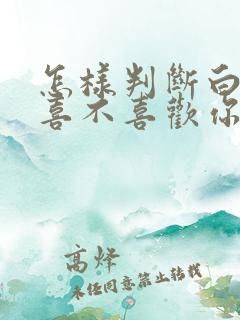 怎樣判斷白
喜不喜歡你
高烽
未经同意禁止转载